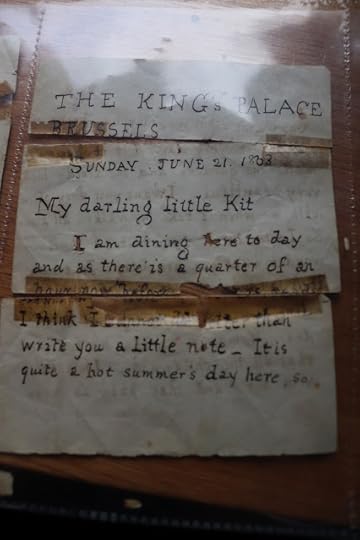 THE KING'S PALACE
BRUSSELS
SUNDAY. JUNE 21. 1903
My darling little Kit
I am dining here to day
and as there is a quarter of an
hour now before
I think I cannot do better than
write you a little note_ It is
quite a hot summer's day here, so